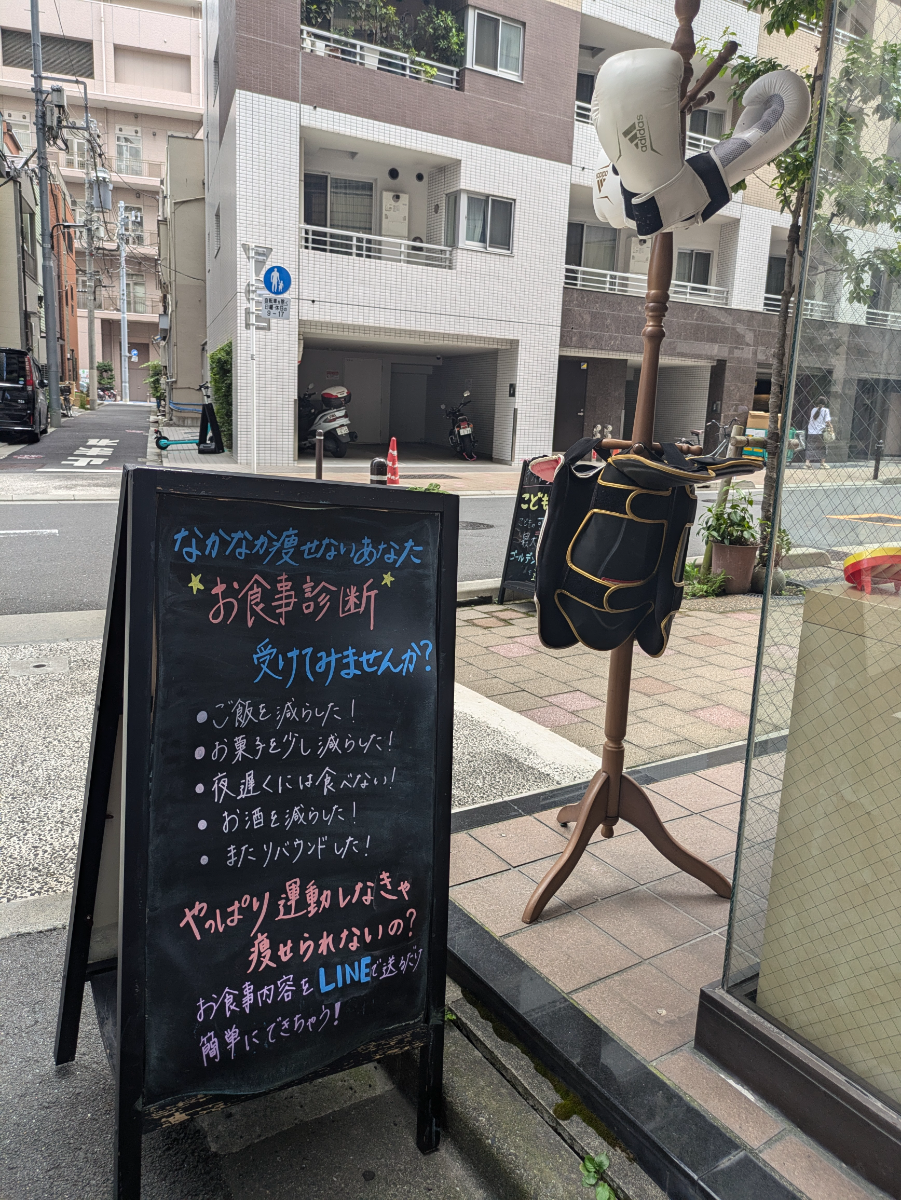 なかなか痩せないあなた
お食事診断
受けてみませんか?
● ご飯を減らした!
● お菓子を少し減らした!
● 夜遅くには食べない!
● お酒を減らした!
● またリバウンドした!
やっぱり運動しなきゃ
痩せられないの?
お食事内容をLINEで送るだけ
簡単にできちゃう!
adidas
こども
8-17
止まれ